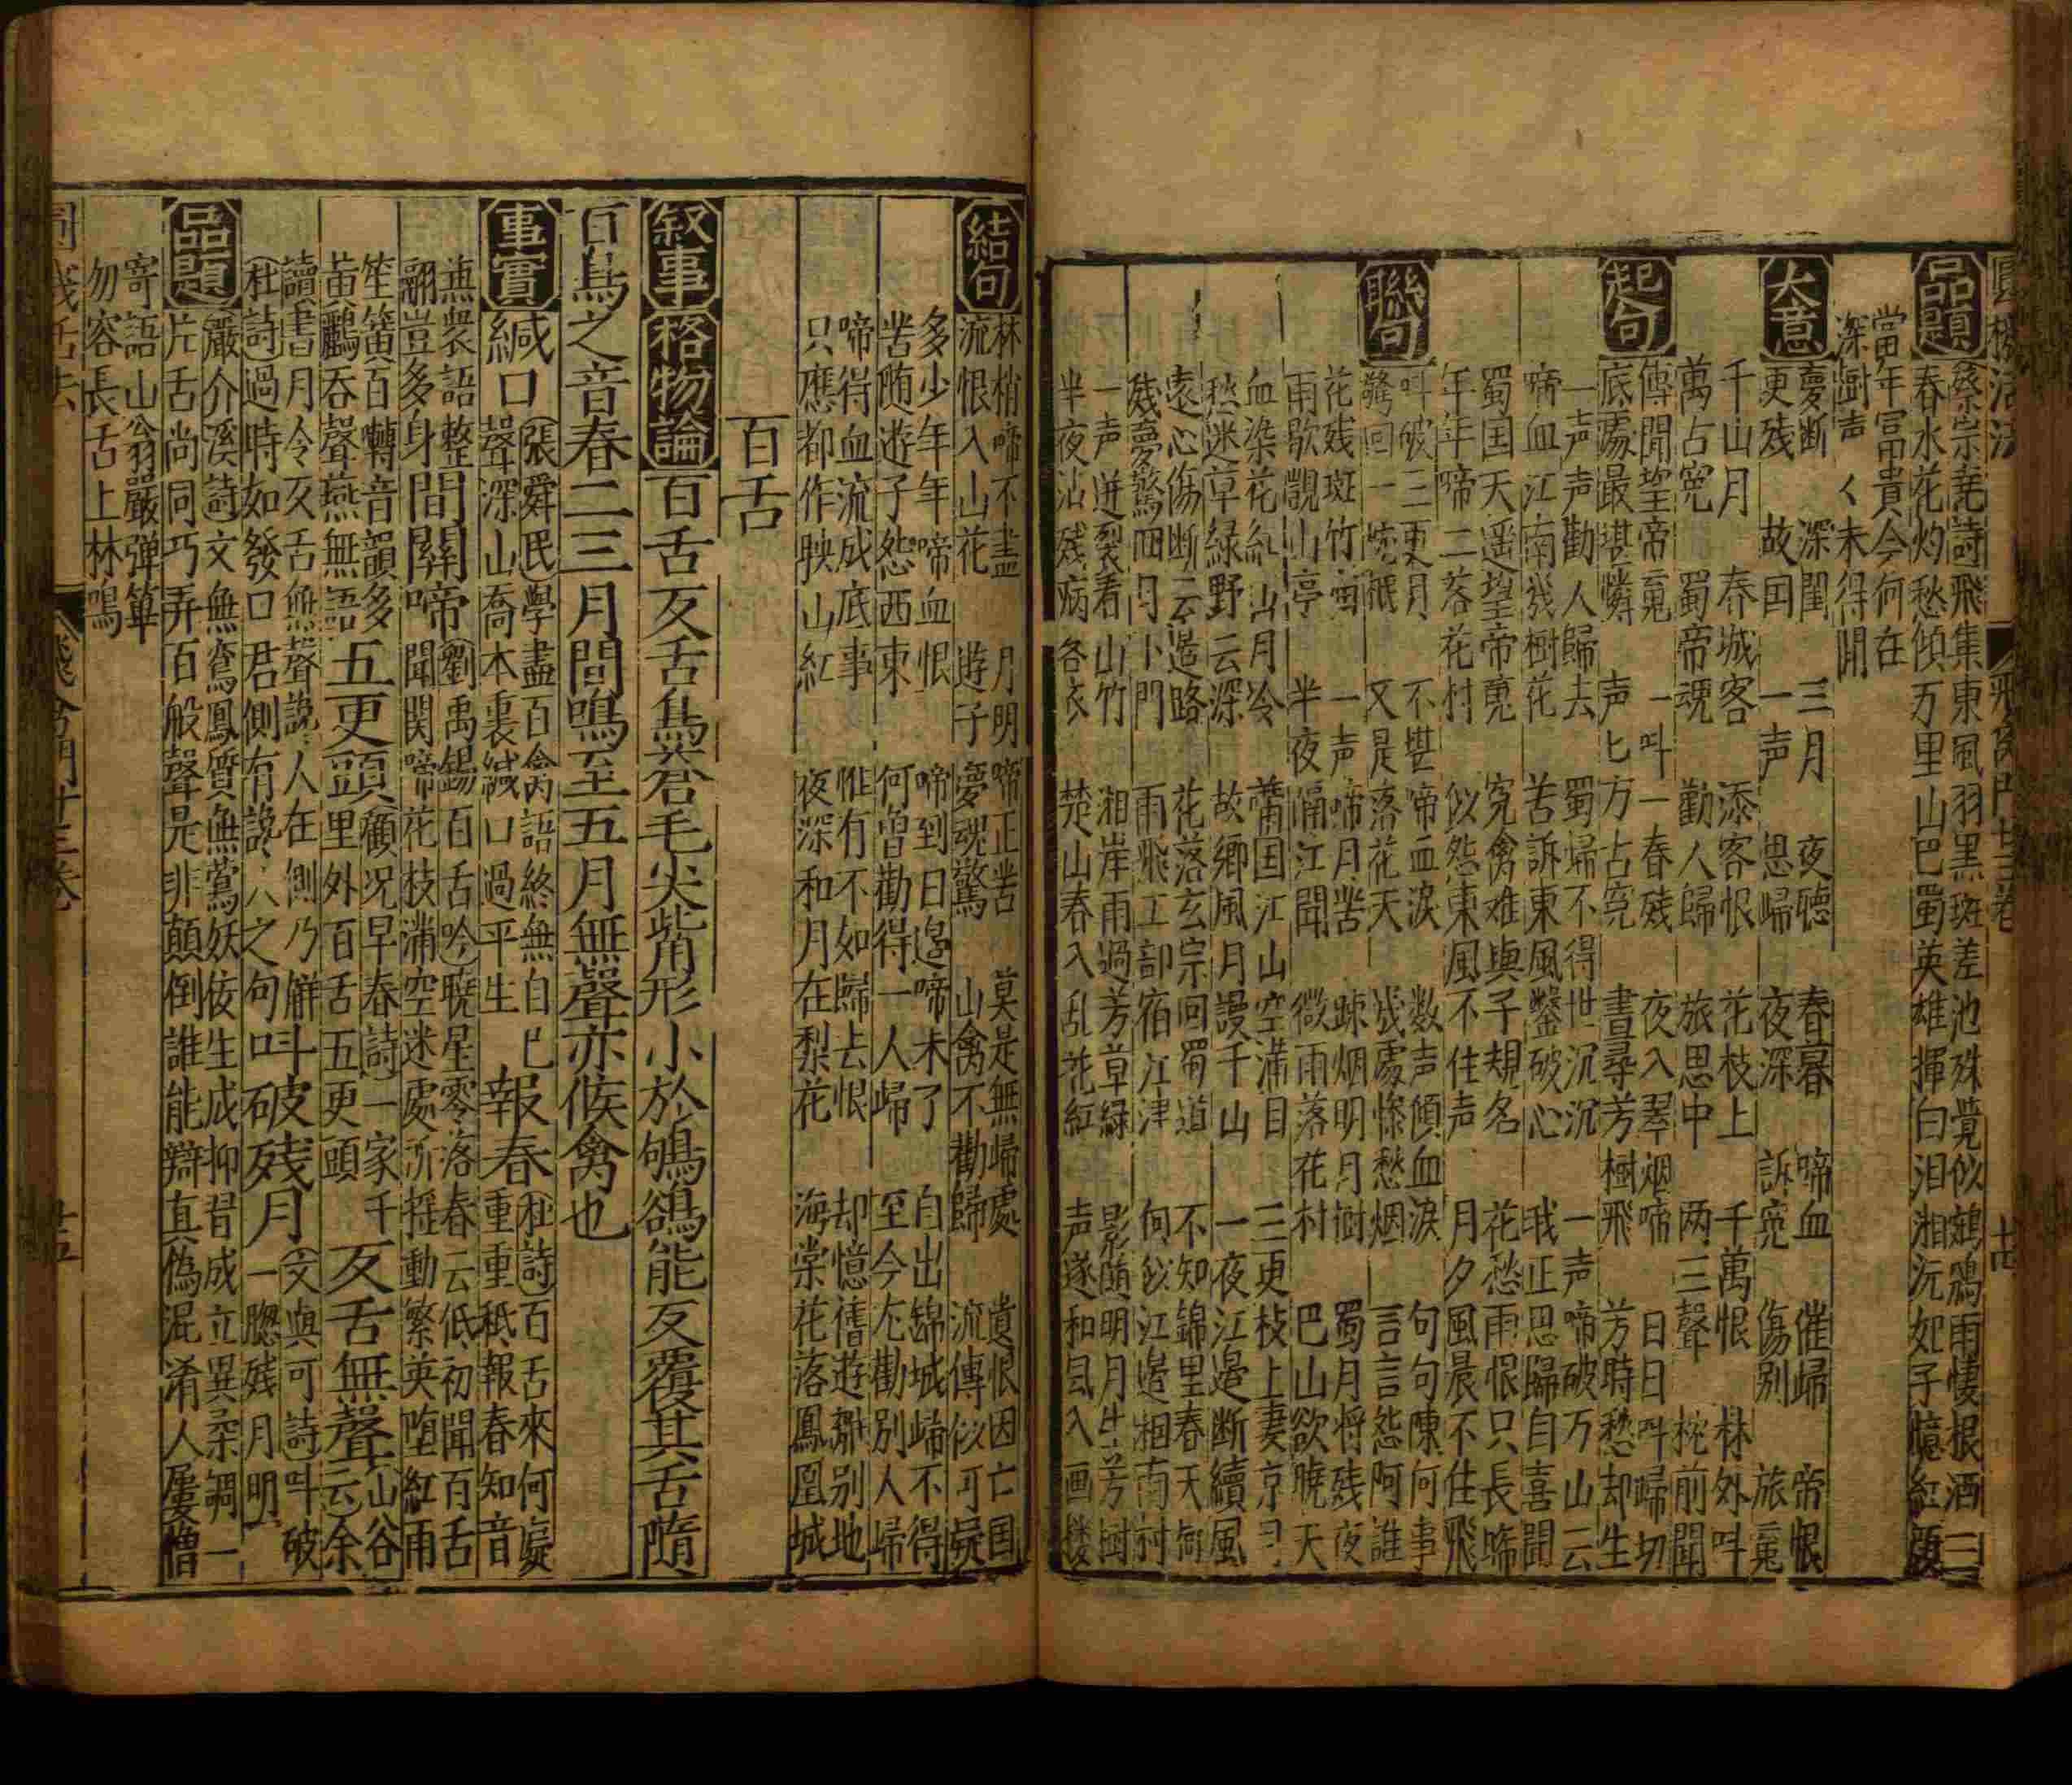 圓機活法 飛禽門廿三卷 十四
品題 蔡宗堯詩飛集東風羽黒斑差池殊覺似鵝鴉雨悽根洒三
春水花灼愁傾万里山巴蜀英雄揮白泪湘沅妃子臆紅顔
當年富貴今何在
深樹声〻未得閒
大意 夢断 深閨 三月 夜聴 春暮 啼血 催帰 帝恨
更残 故国 一声 思帰 夜深 訴寃 傷别 旅䰟
千山月 春城客 添客恨 花枝上 千萬恨 林外呌
萬占寃 蜀帝魂 勸人歸 旅思中 两三聲 枕前聞
起句 傳聞望帝䰟 一呌一春残 夜入翠烟啼 日日呌歸切
底處最堪憐 声匕方占寃 晝尋芳樹飛 芳時愁却生
一声声勸人歸去 蜀帰不得世沉沉 一声啼破万山云
啼血江南幾樹花 苦訴東風鑿破心 我正思歸自喜聞
蜀国天遥望帝䰟 寃禽难與子規名 花愁雨恨只長啼
年年啼二落花村 似怨東風不住声 月夕風晨不住飛
聯句 呌破三更月 不堪啼血淚 数声傾血淚 句句陳何事
驚回一 又是落花天 幾處惨愁烟 言言怨阿誰
花残斑竹雨 一声啼月苦 踈烟明月樹 蜀月将残夜
雨歇覩山亭 半夜隔江聞 微雨落花村 巴山欲曉天
血染花紅山月冷 蕭国江山空满目 三更枝上妻京月
愁迷草緑野云深 故郷風月謾千山 一夜江邉断續風
遠心傷断云邉路 花落玄宗回蜀道 不知錦里春天
残夢驚回月卜門 雨飛工部宿江津 何似江邉相南村
一声迸裂看山竹 湘岸雨過芳草緑 影随明月生芳樹
半夜沾残病各衣 楚山春入乱花紅 声遂和風入画楼
結句 林梢啼不盡 月明啼正苦 莫是無歸處 遺恨因亡国
流恨入山花 遊子夢魂驚 山禽不勸歸 流傳似可疑
多少年年啼血恨 啼到日邉啼未了 自出錦城帰不得
苦随遊子怨西東 何曽勸得一人歸 至今尤勸别人帰
啼得血流成底事 惟有不如歸去恨 却憶舊遊離别地
只應都作映山紅 夜深和月在梨花 海棠花落鳳凰城
百舌
叙事 格物論 百舌反舌鳥蒼毛尖觜形小於鴝鵒能反覆其舌隨
百鳥之音春二三月間鳴至五月無聲亦候禽也
事實 緘口 張舜民學盡百禽語終無自己
聲深山喬木裏緘口過平生 報春 杜詩百舌來何處
重重秪報春知音
無衆語整
翮豈多身 間關啼 劉禹錫百舌吟曉星零落春云低初聞百舌
聞関啼花枝满空迷處所揺動繁英堕紅雨
笙簧百囀音韻多
黄鸝吞聲燕無語 五更頭 顧况早春詩一家千
里外百舌五更頭 反舌無聲 山谷
云余
讀書月令反舌無聲説人在側乃觧
杜詩過時如發口君側有説人之句 呌破残月 文與可詩呌破
一牎残月明
嚴介溪詩文無鸞鳳質無鶯妖侫生成抑昔成立異柔調一
品題 片舌尚同巧弄百般聲是非顛倒誰能辯真偽混淆人屢憎
寄語山翁嚴弹箪
勿容長舌上林鳴
圓機活法 飛禽門廿三卷 廿五